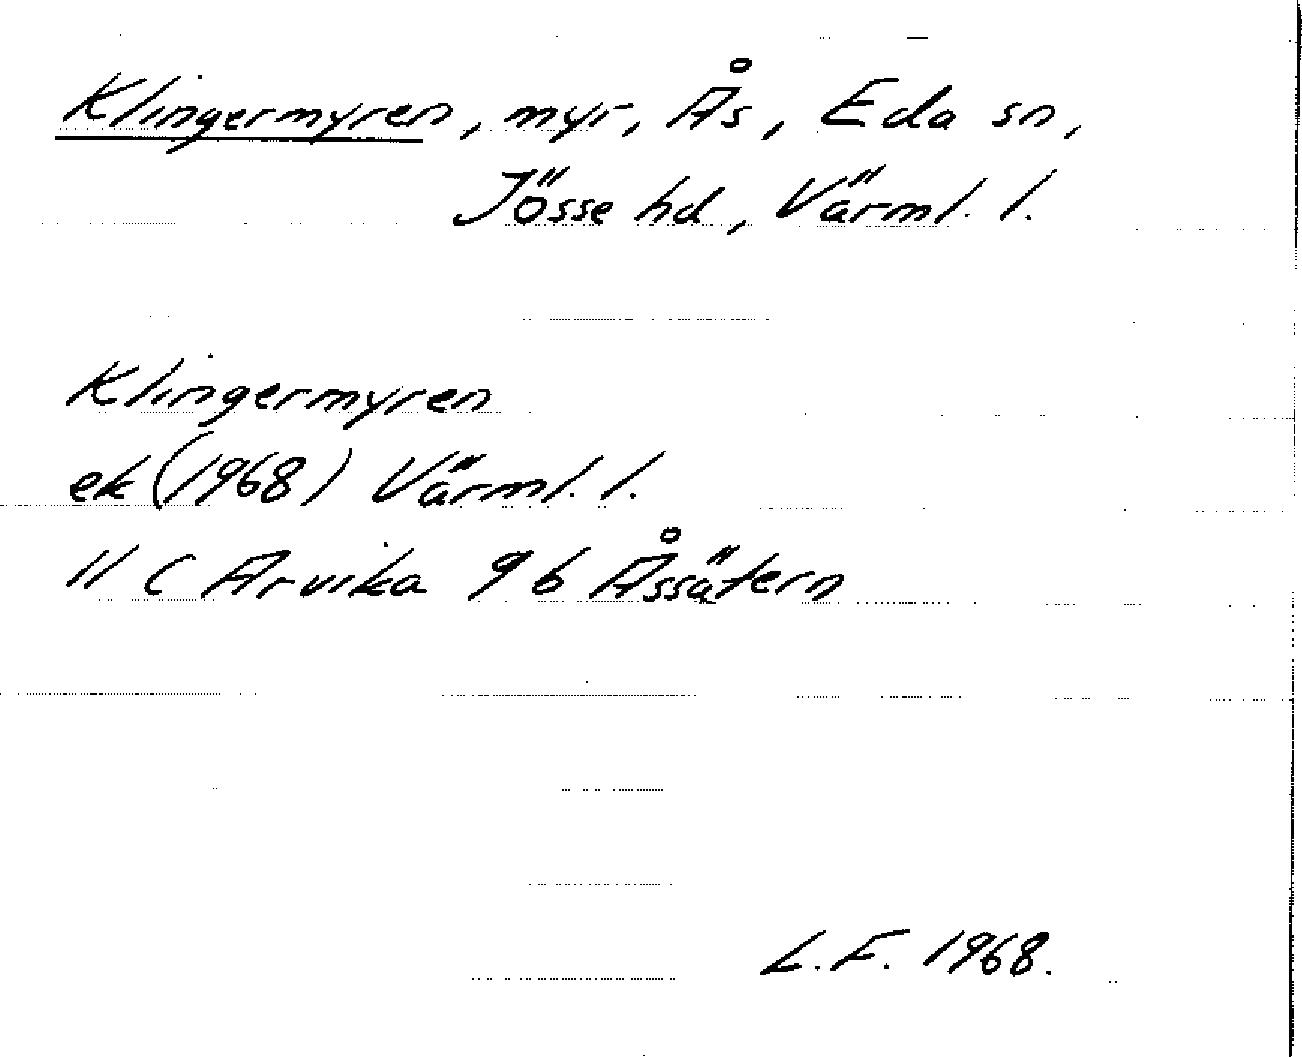 Klingermyren, myr, Ås, Eda sn,
Jösse hd, Värml. l.
Klingermyren
ek (1968) Värml. l.
11 C Arvika 9 b Åssätern
L.F. 1968.